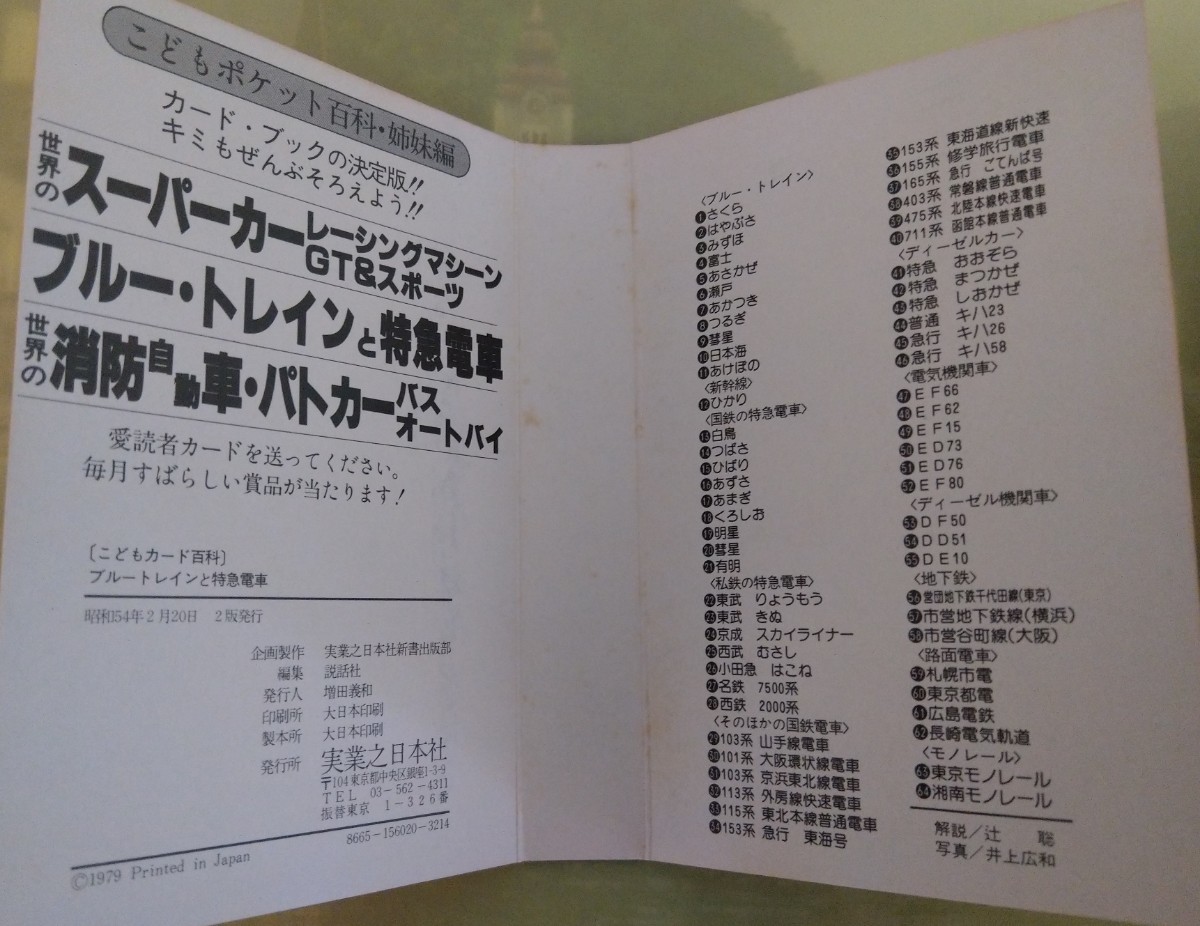 こどもポケット百科・姉妹編
カード・ブックの決定版!!
キミもぜんぶそろえよう!!
世界のスーパーカー レーシングマシーン GT&スポーツ
ブルー・トレインと特急電車
世界の消防自動車・パトカー バス オートバイ
愛読者カードを送ってください。
毎月すばらしい賞品が当たります!
〔こどもカード百科〕
ブルートレインと特急電車
昭和54年2月20日 2版発行
企画製作 実業之日本社新書出版部
編集 説話社
発行人 増田義和
印刷所 大日本印刷
製本所 大日本印刷
発行所 実業之日本社
〒104 東京都中央区銀座1-3-9
TEL 03-562-4311
振替東京 1-326番
8665-156020-3214
©1979 Printed in Japan
〈ブルー・トレイン〉
❶さくら
❷はやぶさ
❸みずほ
❹富士
❺あさかぜ
❻瀬戸
❼あかつき
❽つるぎ
❾彗星
❿日本海
⓫あけぼの
〈新幹線〉
⓬ひかり
〈国鉄の特急電車〉
⓭白鳥
⓮つばさ
⓯ひばり
⓰あずさ
⓱あまぎ
⓲くろしお
⓳明星
⓴彗星
21有明
〈私鉄の特急電車〉
22東武 りょうもう
23東武 きぬ
24京成 スカイライナー
25西武 むさし
26小田急 はこね
27名鉄 7500系
28西鉄 2000系
〈そのほかの国鉄電車〉
29103系 山手線電車
30101系 大阪環状線電車
31103系 京浜東北線電車
32113系 外房線快速電車
33115系 東北本線普通電車
34153系 急行 東海号
35153系 東海道線新快速
36155系 修学旅行電車
37165系 急行 ごてんば号
38403系 常磐線普通電車
39475系 北陸本線快速電車
40711系 函館本線普通電車
〈ディーゼルカー〉
41特急 おおぞら
42特急 まつかぜ
43特急 しおかぜ
44普通 キハ23
45急行 キハ26
46急行 キハ58
〈電気機関車〉
47EF66
48EF62
49EF15
50ED73
51ED76
52EF80
〈ディーゼル機関車〉
53DF50
54DD51
55DE10
〈地下鉄〉
56営団地下鉄千代田線(東京)
57市営地下鉄線(横浜)
58市営谷町線(大阪)
〈路面電車〉
59札幌市電
60東京都電
61広島電鉄
62長崎電気軌道
〈モノレール〉
63東京モノレール
64湘南モノレール
解説/辻 聡
写真/井上広和